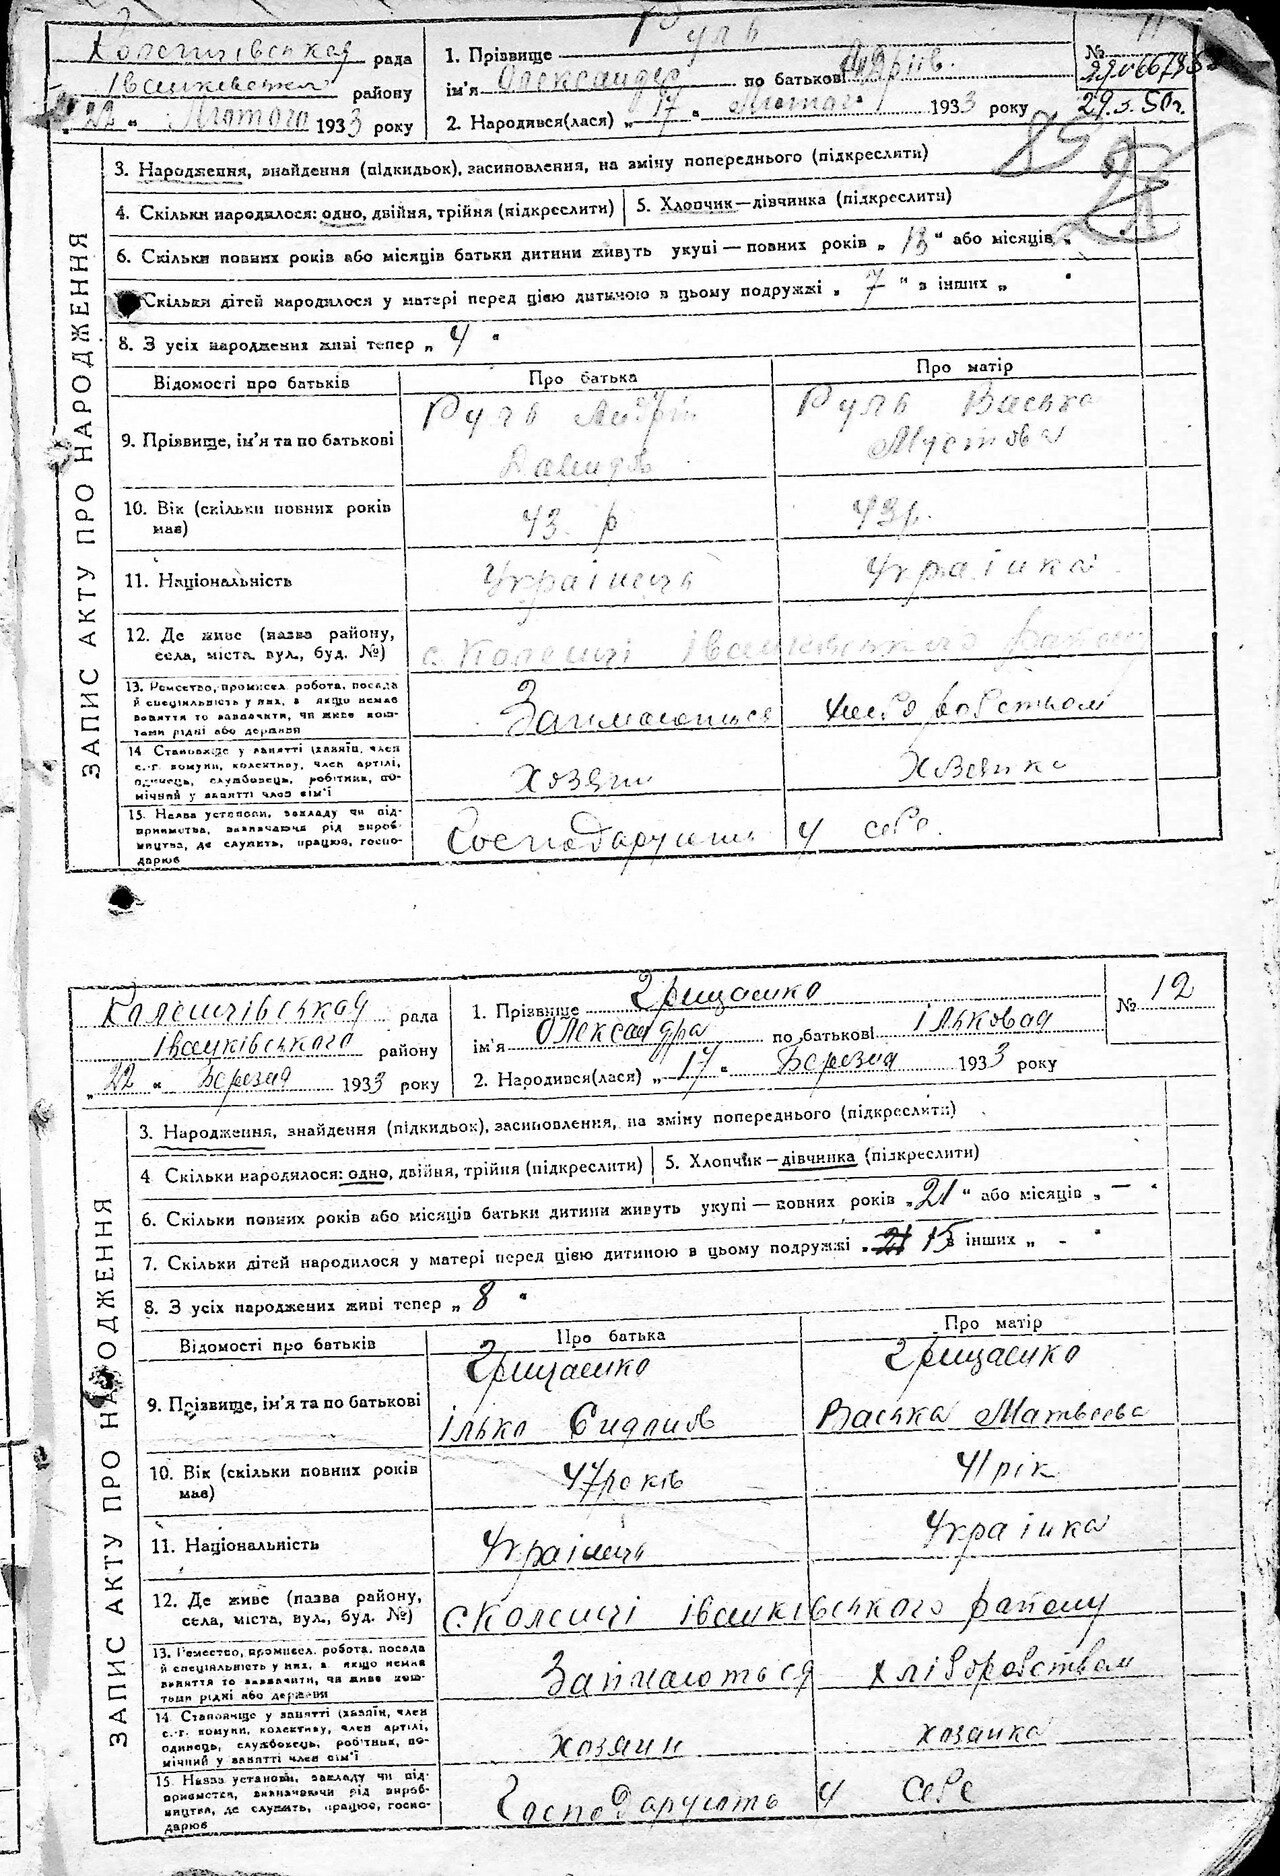 Руль
рада
1. Прізвище
№ 11
району
ім'я Олександр по батькові
"22" Лютого 1933 року
2. Народився(лася) "17" Лютого 1933 року
29.5.50г.
85
ЗАПИС АКТУ ПРО НАРОДЖЕННЯ
3. Народження, знайдення (підкидьок), засиновлення, на зміну попереднього (підкреслити)
4. Скільки народилося: одно, двійня, трійня (підкреслити) 5. Хлопчик—дівчинка (підкреслити)
6. Скільки повних років або місяців батьки дитини живуть укупі — повних років „13“ або місяців „
Скільки дітей народилося у матері перед цією дитиною в цьому подружжі „7“ в інших „
8. З усіх народжених живі тепер „4“
Відомості про батьків Про батька Про матір
9. Прізвище, ім'я та по батькові
Руль
Руль Васька
10. Вік (скільки повних років має)
43 р
43 р.
11. Національність
Українець
Українка
12. Де живе (назва району, села, міста, вул., буд. №)
с. Коленці Іванківського району
13. Ремество, промисел, робота, посада
й спеціяльність у них, а якщо немає
заняття то зазначити, чи живе кош-
тами рідні або держави
Займаються хлеборобством
14 Становище у занятті (хазяїн, член
с.-г. комуни, колективу, член артілі,
одинець, службовець, робітник, по-
мічний у занятті член сім'ї
Хозяин
Хозяика
15. Назва установи, закладу чи під-
приємства, зазначаючи рід вироб-
ництва, де служить, працює, госпо-
дарює
Господарують у себе.
рада
1. Прізвище Грищенко
№ 12
Іванківського району
ім'я Олександра по батькові Ількова
"22" Березня 1933 року
2. Народився(лася) "17" Березня 1933 року
ЗАПИС АКТУ ПРО НАРОДЖЕННЯ
3. Народження, знайдення (підкидьок), засиновлення, на зміну попереднього (підкреслити)
4 Скільки народилося: одно, двійня, трійня (підкреслити) 5. Хлопчик — дівчинка (підкреслити)
6. Скільки повних років або місяців батьки дитини живуть укупі — повних років „21“ або місяців „—“
7. Скільки дітей народилося у матері перед цією дитиною в цьому подружжі „21 15 в інших „-“
8. З усіх народжених живі тепер „8“
Відомості про батьків Про батька Про матір
9. Прізвище, ім'я та по батькові
Грищенко
Ілько
Грищенко
Васька Матвеева
10. Вік (скільки повних років має)
47 років
41 рік
11. Національність
Українець
Українка
12. Де живе (назва району, села, міста, вул., буд. №)
с. Коленці Іванківського району
13. Ремество, промисел, робота, посада
й спеціяльність у них, а якщо немає
заняття то зазначити, чи живе кош-
тами рідні або держави
Займаються хліборобством
14 Становище у занятті (хазяїн, член
с.-г. комуни, колективу, член артілі,
одинець, службовець, робітник, по-
мічний у занятті член сім'ї
хозяин
хозяика
15. Назва установи, закладу чи під-
приємства, зазначаючи рід вироб-
ництва, де служить, працює, госпо-
дарює
Господарують у себе